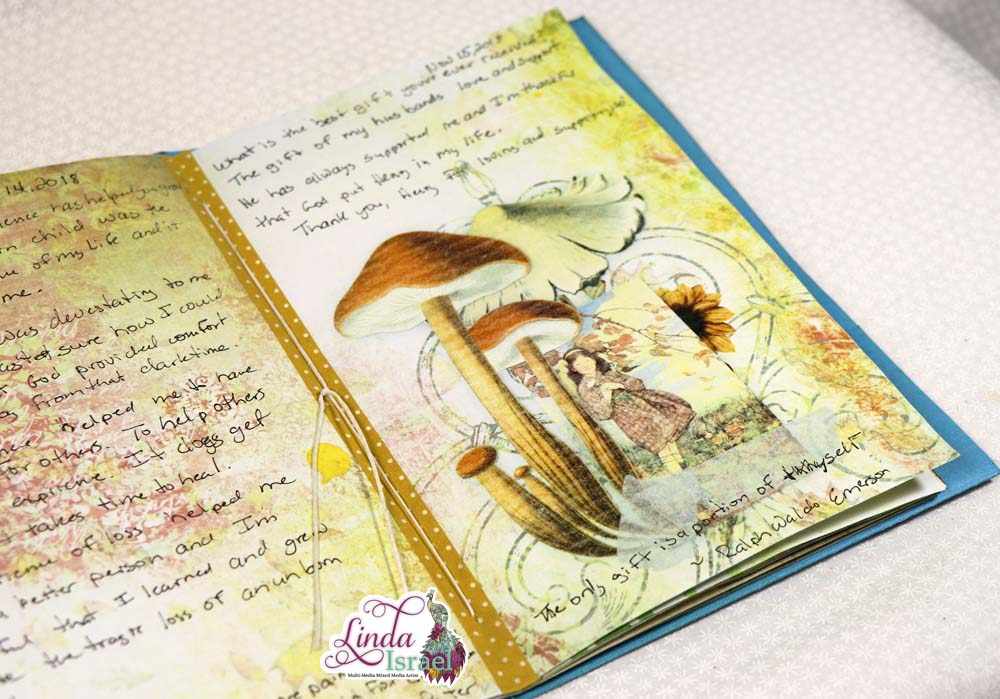 14.2018
child was the
of my life and it
me.
was devastating to me
not sure how I could
God provided comfort
from that dark time.
helped me have
for others. To help others
It does get
takes time to heal.
of loss helped me
better person and I'm
that I learned and grew
the tragic loss of an unborn
Nov 15, 2018
What is the best gift you've ever received?
The gift of my husbands love and support.
He has always supported me and I'm thankful
that God put in my life.
Thank you, loving and supporting me!
The only gift is a portion of thyself.
~ Ralph Waldo Emerson
Linda
Israel
Multi-Media Mixed Media Artist